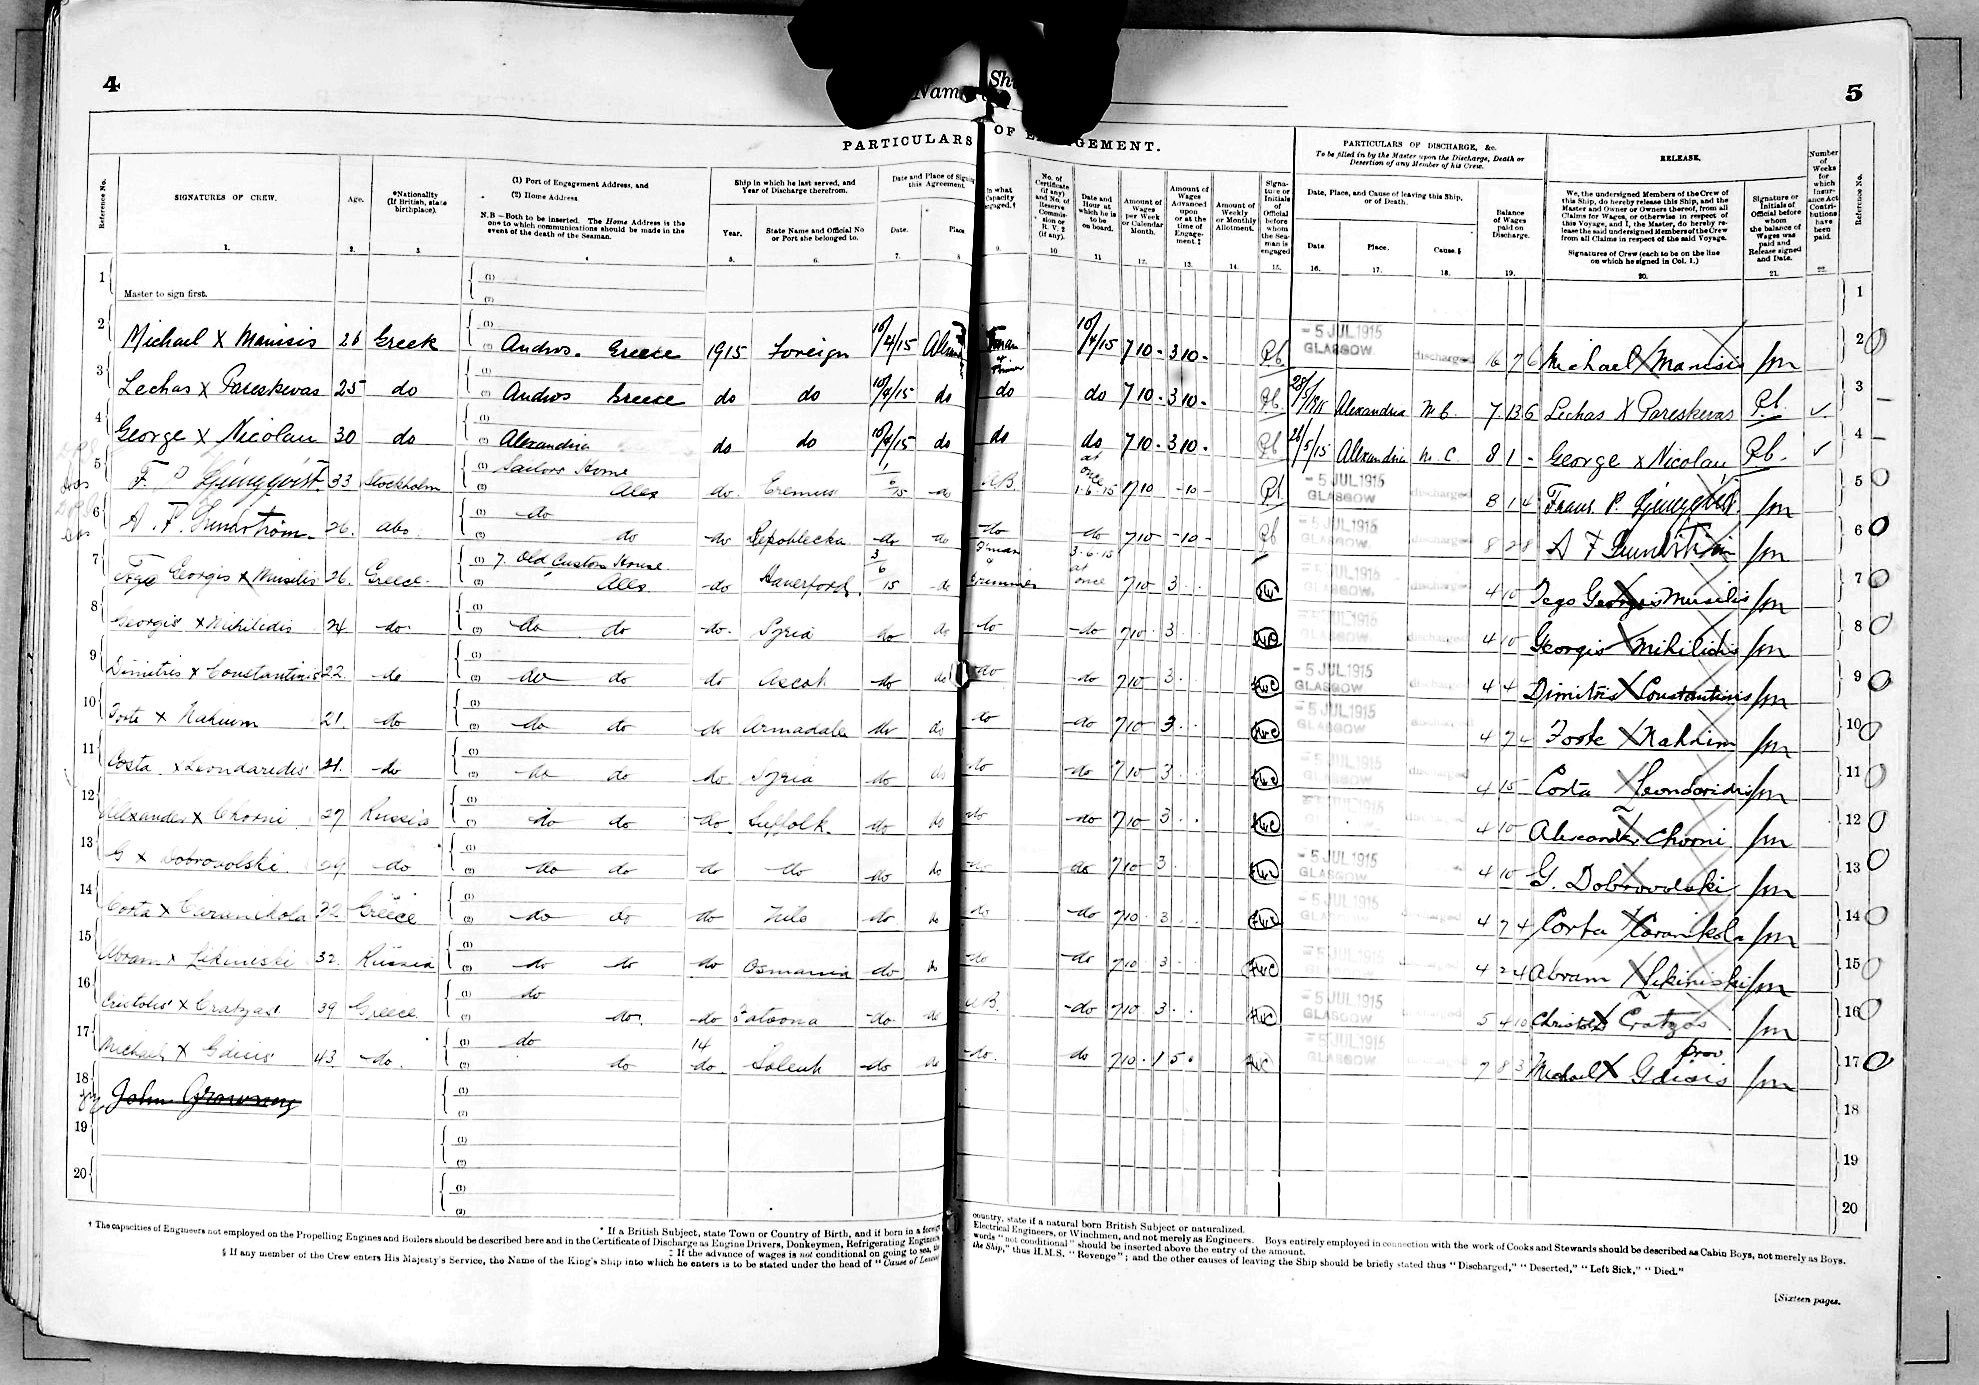 4
Name
Sh
5
PARTICULARS OF E GEMENT.
PARTICULARS OF DISCHARGE, &c.
To be filled in by the Master upon the Discharge, Death or
Desertion of any Member of his Crew.
RELEASE.
Reference No.
SIGNATURES OF CREW.
1.
Age.
2.
*Nationality
(If British, state
birthplace).
3.
(1) Port of Engagement Address, and
(2) Home Address
N.B—Both to be inserted. The Home Address is the
one to which communications should be made in the
event of the death of the Seaman.
4
Ship in which he last served, and
Year of Discharge therefrom.
Year.
5.
State Name and Official No
or Port she belonged to.
6.
Date and Place of Signing
this Agreement.
Date.
7.
Place
8
In what
Capacity
engaged.†
9.
No. of
Certificate
(if any)
and No. of
Reserve
Commis-
sion or
R. V. 2
(if any).
10
Date and
Hour at
which he is
to be
on board.
11
Amount of
Wages
per Week
or Calendar
Month.
12.
Amount of
Wages
Advanced
upon
or at the
time of
Engage-
ment.‡
13.
Amount of
Weekly
or Monthly
Allotment.
14.
Signa-
ture or
Initials
of
Official
before
whom
the Sea-
man is
engaged
15.
Date, Place, and Cause of leaving this Ship,
or of Death.
Date.
16.
Place.
17.
Cause.§
18.
Balance
of Wages
paid on
Discharge.
19.
We, the undersigned Members of the Crew of
this Ship, do hereby release this Ship, and the
Master and Owner or Owners thereof, from all
Claims for Wages, or otherwise in respect of
this Voyage, and I, the Master, do hereby re-
lease the said undersigned Members of the Crew
from all Claims in respect of the said Voyage.
Signatures of Crew (each to be on the line
on which he signed in Col. 1.)
20.
Signature or
Initials of
Official before
whom
the balance of
Wages was
paid and
Release signed
and Date.
21.
Number
of
Weeks
for
which
Insur-
ance Act
Contri-
butions
have
been
paid.
22.
Reference No.
1 Master to sign first. (1) (2) 1
2 Michael X Manisis 26 Greek (1) (2) Andros. Greece 1915 Foreign 10/4/15 10/4/15 7 10 - 3 10 - Pb. -5 JUL 1915 GLASGOW discharged 16 7 6 Michael X Manisis 2
3 Lechas X Pareskevas 25 do (1) (2) Andros Greece do do 10/4/15 do do do 7 10 - 3 10 - Pb. 28/5/1915 Alexandria M.C. 7 13 6 Lechas X Pareskevas Pb. 3
4 George X Nicolau 30 do (1) (2) Alexandria do do 10/4/15 do do do 7 10 - 3 10 - Pb 26/5/15 Alexandria M.C. 8 1 - George X Nicolau Pb. 4
5 33 Stockholm (1) Sailors Home (2) Alex do 1/6/15 do AB at once 1-6-15 7 10 - 10 - Pb -5 JUL 1915 GLASGOW discharged 8 1 4 Frans P. 5
6 A. F. 26 abo (1) do (2) do do do do do do 7 10 - 10 - Pb -5 JUL 1915 GLASGOW 8 2 8 A F 6
7 Georgis X Musilis 26 Greece (1) 7. Old Custom House (2) Alex. do Haverford 3/6/15 do F'man & Trimmer 3-6-15 at once 7 10 3 -5 JUL 1915 GLASGOW 4 10 Georgis Musilis 7
8 Georgis X Mihilidis 24 do (1) (2) do do do Syria do do do do 7 10 3 -5 JUL 1915 GLASGOW discharged 4 10 Georgis X Mihilidis 8
9 Dimitris X Constantinis 22 do (1) (2) do do do Ascot do do do do 7 10 3 -5 JUL 1915 GLASGOW discharged 4 4 Dimitris X Constantinis 9
10 X Nahium 21 do (1) (2) do do do Armadale do do do do 7 10 3 -5 JUL 1915 GLASGOW 4 7 X 10
11 Costa X Leondaredis 21 do (1) (2) do do do Syria do do do do 7 10 3 -5 JUL 1915 GLASGOW 4 15 Costa X Leondaridis 11
12 Alexander X Chorni 27 Russia (1) (2) do do do Suffolk do do do do 7 10 3 -5 JUL 1915 GLASGOW 4 10 Alexander Chorni 12
13 G X Dobrovolski 29 do (1) (2) do do do do do do do do 7 10 3 -5 JUL 1915 GLASGOW 4 10 G. Dobrovolski 13
14 Costa X Caranikola 32 Greece (1) (2) do do do Nile do do do do 7 10 3 -5 JUL 1915 GLASGOW 4 7 4 Corta Caranikola 14
15 Abram X Likiniski 32 Russia (1) (2) do do do Osmania do do do do 7 10 3 -5 JUL 1915 GLASGOW 4 2 4 Abram X Likiniski 15
16 Cristolis X Cratzas 39 Greece (1) do (2) do do do do AB do 7 10 3 -5 JUL 1915 GLASGOW 5 4 10 Christolis X Cratzas 16
17 Michael X Gdisis 43 do (1) do (2) do 14 do do do do do 7 10 1 5 -5 JUL 1915 GLASGOW 7 8 3 Michael X Gdisis 17
18 John (1) (2) 18
19 (1) (2) 19
20 (1) (2) 20
* If a British Subject, state Town or Country of Birth, and if born in a foreign country, state if a natural born British Subject or naturalized.
† The capacities of Engineers not employed on the Propelling Engines and Boilers should be described here and in the Certificate of Discharge as Engine Drivers, Donkeymen, Refrigerating Engineers Electrical Engineers, or Winchmen, and not merely as Engineers. Boys entirely employed in connection with the work of Cooks and Stewards should be described as Cabin Boys, not merely as Boys.
‡ If the advance of wages is not conditional on going to sea, the words "not conditional" should be inserted above the entry of the amount.
§ If any member of the Crew enters His Majesty's Service, the Name of the King's Ship into which he enters is to be stated under the head of "Cause of Leaving the Ship," thus H.M.S. "Revenge"; and the other causes of leaving the Ship should be briefly stated thus "Discharged," "Deserted," "Left Sick," "Died."
[Sixteen pages.